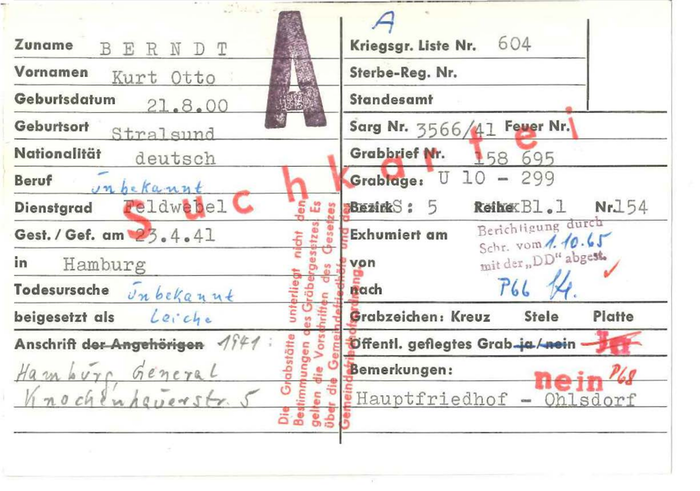 A
A
Zuname BERNDT
Vornamen Kurt Otto
Geburtsdatum 21.8.00
Geburtsort Stralsund
Nationalität deutsch
Beruf Unbekannt
Dienstgrad Feldwebel
Gest./Gef. am 23.4.41
in Hamburg
Todesursache Unbekannt
beigesetzt als Leiche
Anschrift der Angehörigen 1941:
Hamburg, General
Knochenhauerstr. 5
Suchkartei
Die Grabstätte unterliegt nicht den
Bestimmungen des Gräbergesetzes. Es
gelten die Vorschriften des Gesetzes
über die Gemeindefriedhöfe und der
Gemeindefriedhofordnung.
Kriegsgr. Liste Nr. 604
Sterbe-Reg. Nr.
Standesamt
Sarg Nr. 3566/41 Feuer Nr.
Grabbrief Nr. 158 695
Grablage: U 10 - 299
Bezirk S: 5 Reihe Bl.1 Nr. 154
Exhumiert am
von
nach
Berichtigung durch
Schr. vom 1.10.65
mit der „DD" abgest.
P66
Grabzeichen: Kreuz Stele Platte
Öffentl. gepflegtes Grab ja/nein Ja
Bemerkungen: nein P68
Hauptfriedhof - Ohlsdorf